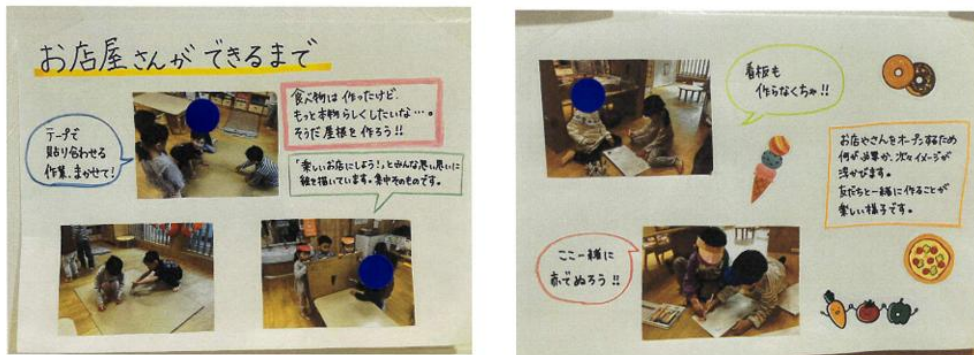 お店屋さんができるまで
テープで
貼り合わせる
作業、まかせて！
食べ物は作ったけど、
もっと本物らしくしたいな…。
そうだ屋根を作ろう!!
「楽しいお店にしよう!」とみんな思い思いに
絵を描いています。集中そのものです。
看板も
作らなくちゃ!!
お店やさんをオープンするため
何が必要か、次々イメージが
浮かびます。
友だちと一緒に作ることが
楽しい様子です。
ここ一緒に
赤でぬろう!!